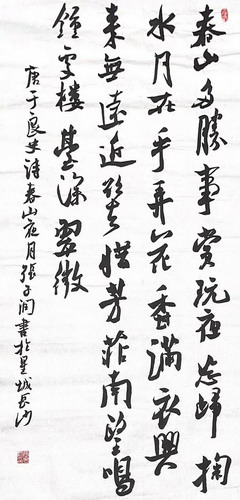 春山多勝事賞玩夜忘歸掬
水月在手弄花香滿衣興
来無遠近欲去惜芳菲南望鳴
鐘處楼臺深翠微
唐于良史诗春山夜月張子润書於星城長沙